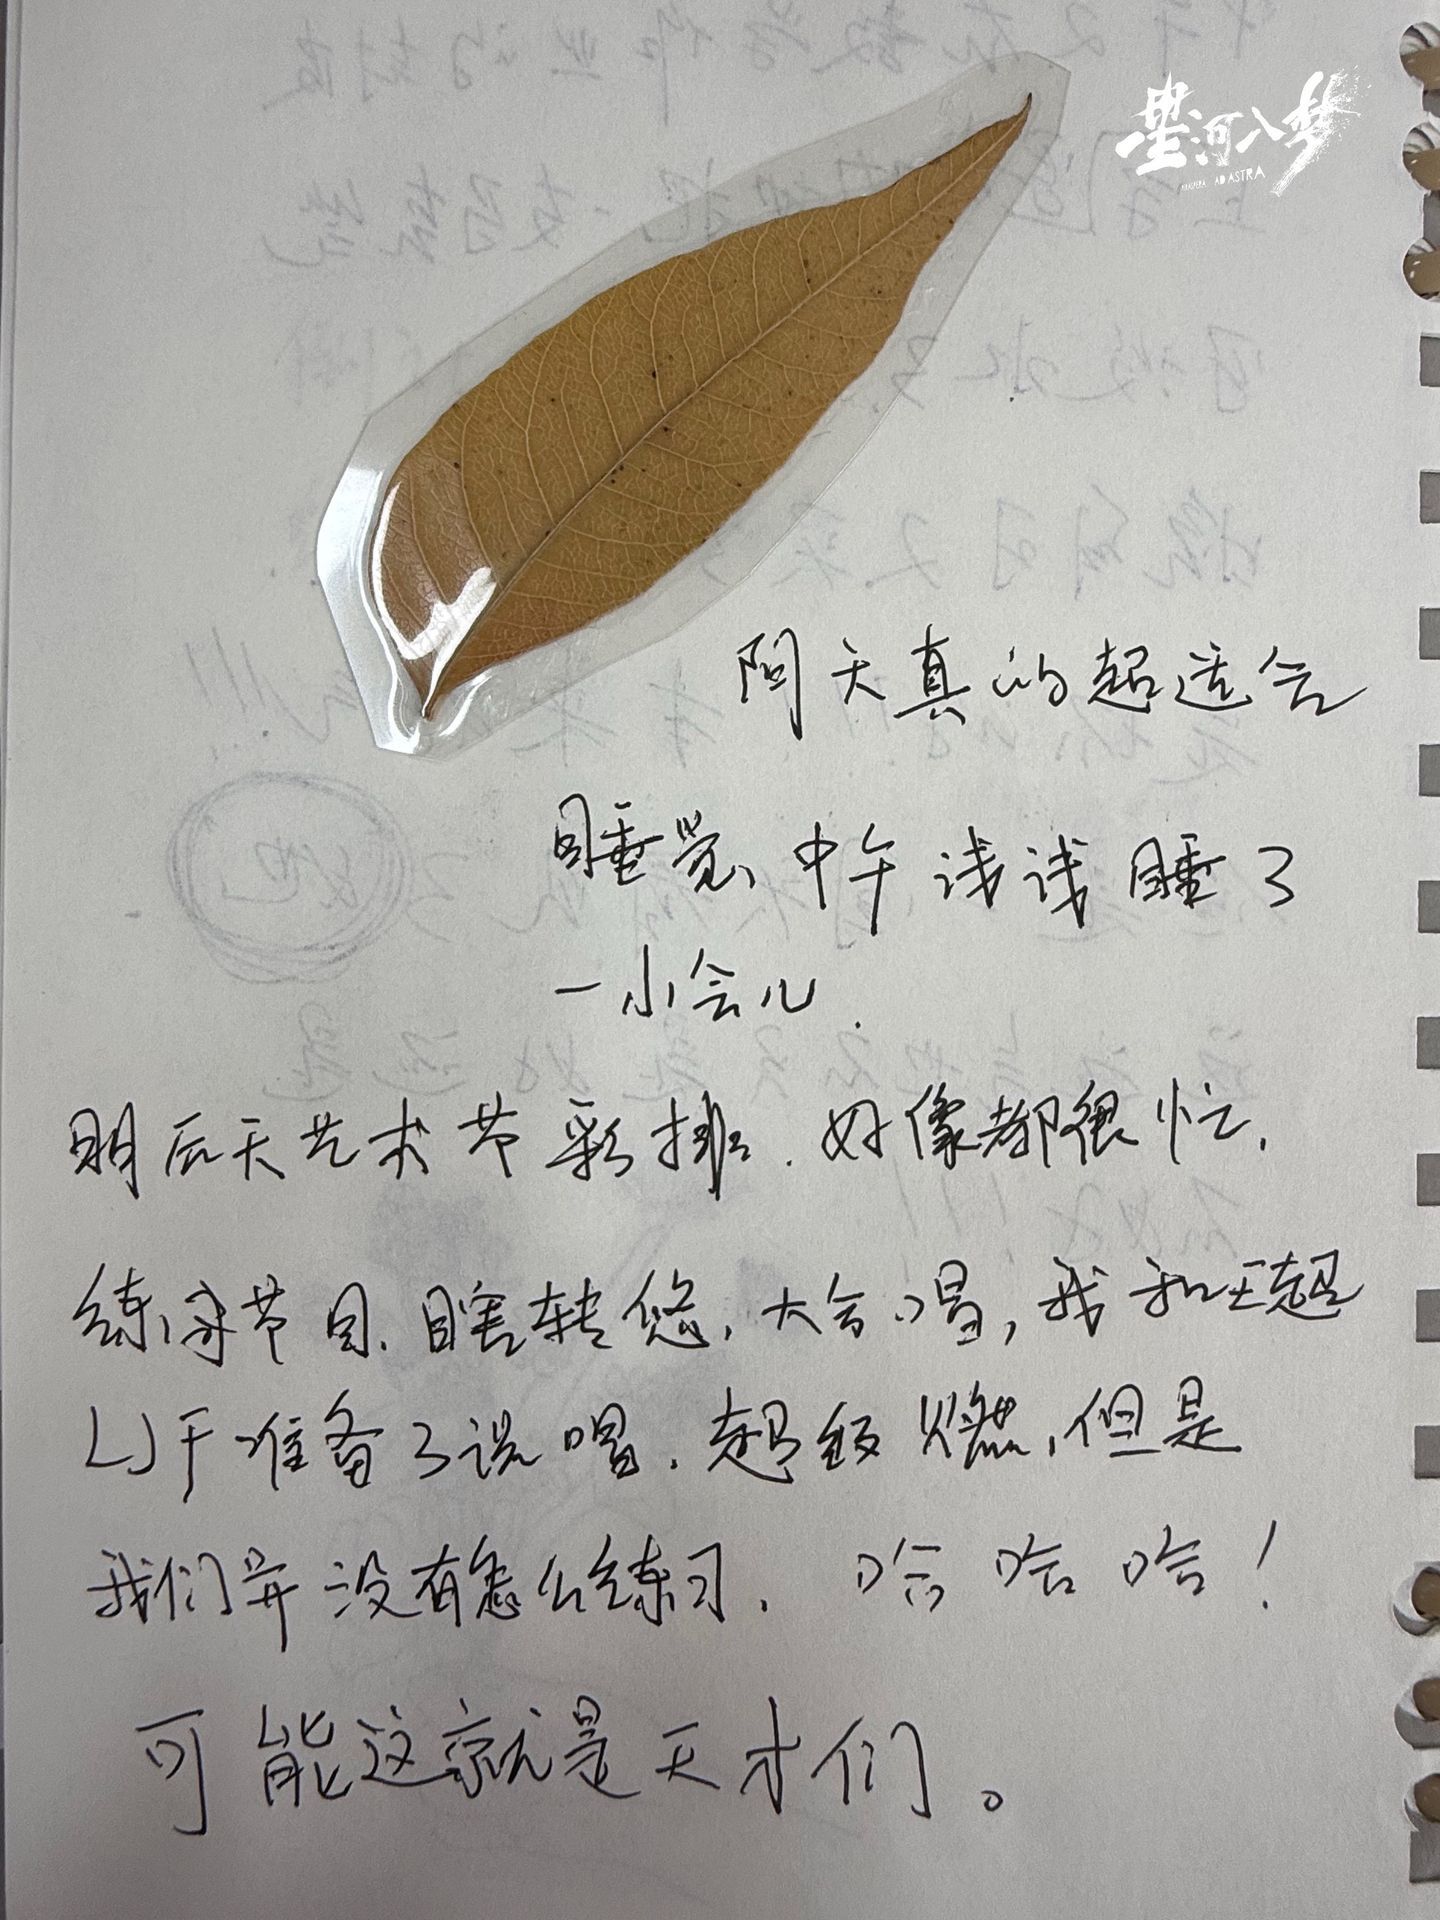 星河入梦
AD ASTRA
阴天真的超适合
睡觉、中午浅浅睡了
一小会儿.
明后天艺术节彩排. 好像都很忙.
练习节目. 瞎转悠, 大合唱, 我和王超
LJF准备了说唱. 超级燃, 但是
我们并没有怎么练习. 哈哈哈!
可能这就是天才们。